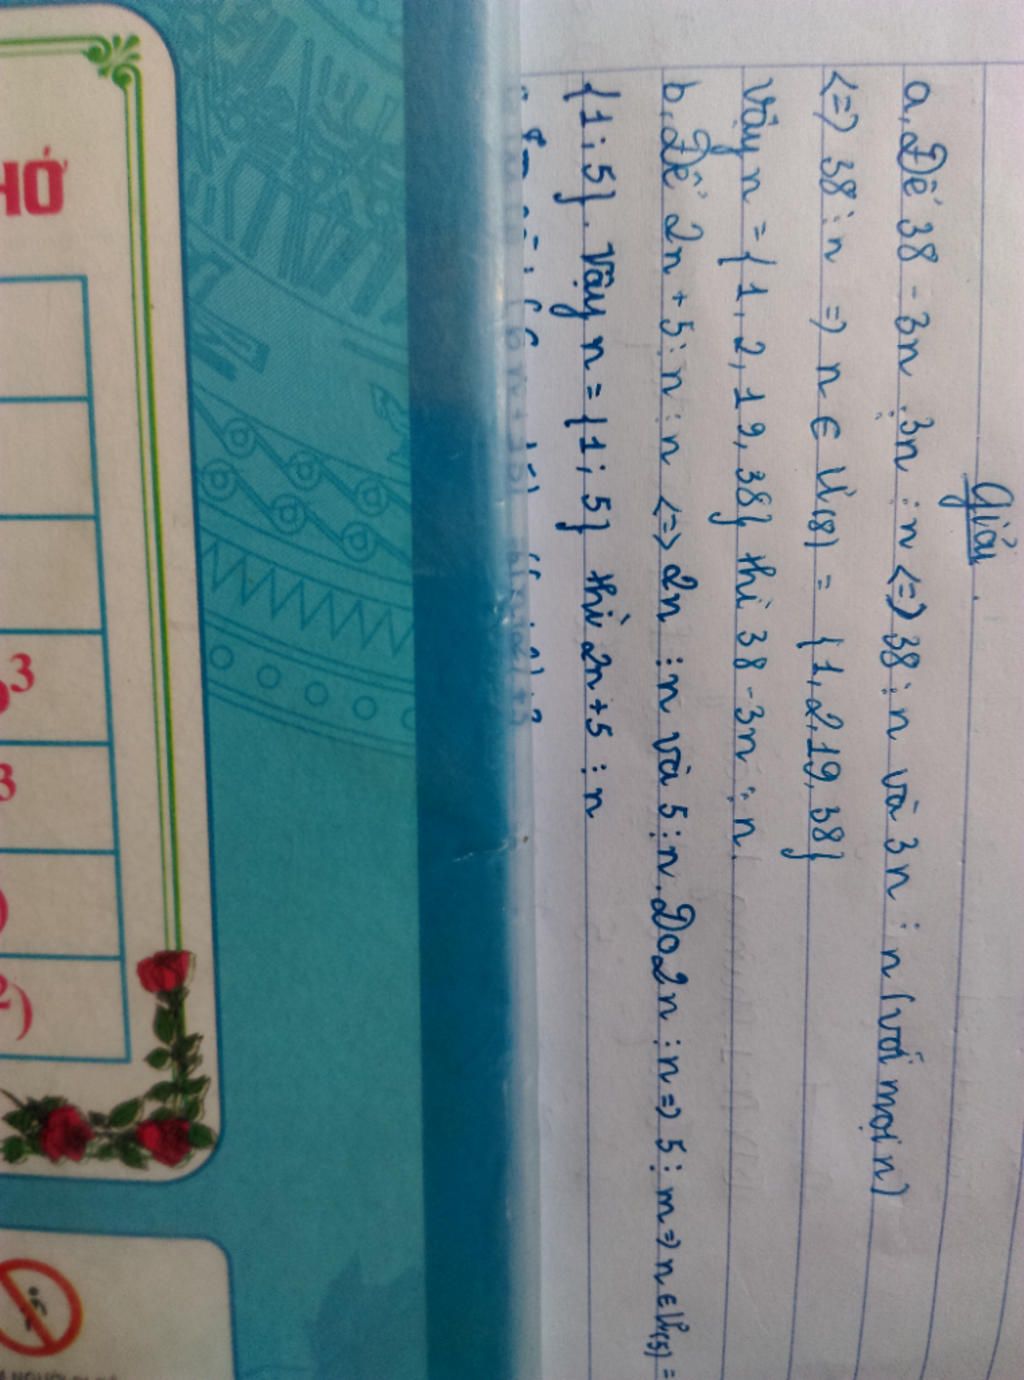 Giải.
a, Để 38 - 3n ⋮ 3n ⋮ n <=> 38 ⋮ n và 3n ⋮ n (với mọi n)
<=> 38 ⋮ n => n ∈ Ư(8) = {1, 2, 19, 38}
Vậy n = {1, 2, 19, 38} thì 38 - 3n ⋮ n.
b, Để 2n + 5 ⋮ n ⋮ n <=> 2n ⋮ n và 5 ⋮ n. Do 2n ⋮ n => 5 ⋮ m => n ∈ Ư(5) =
{1; 5}. Vậy n = {1; 5} thì 2n + 5 ⋮ n
HỚ
3
3
)
2)